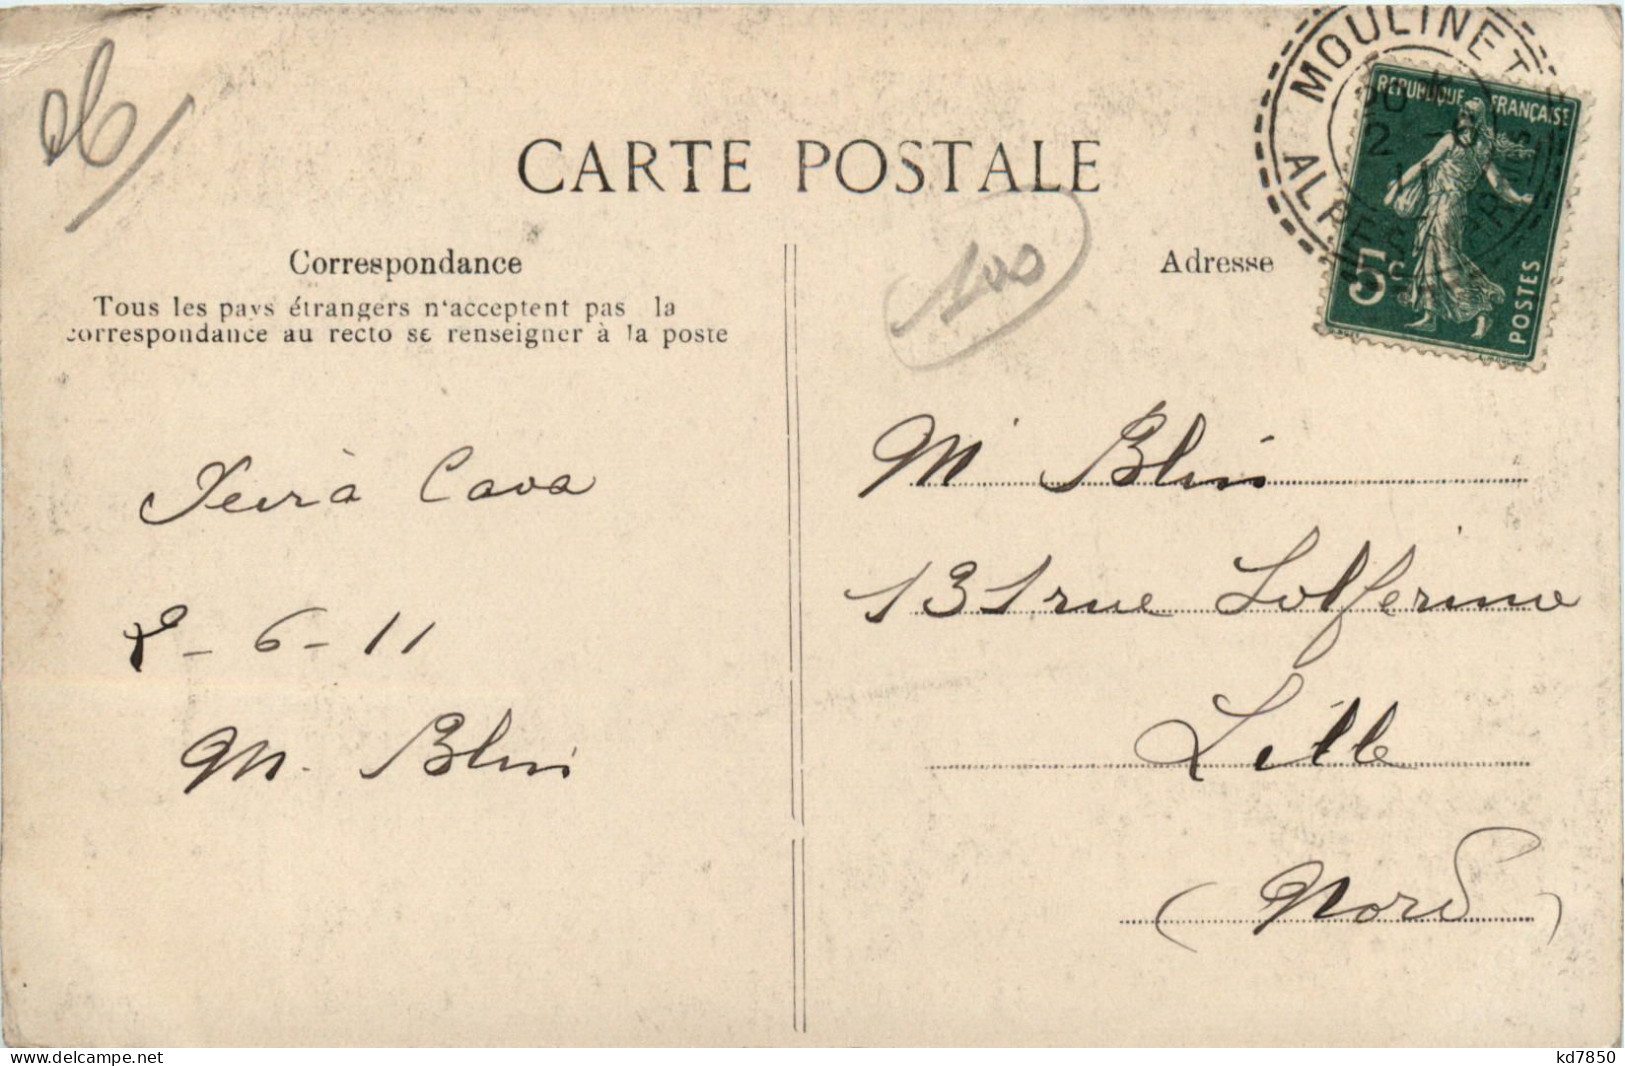 06
CARTE POSTALE
MOULINET
REPUBLIQUE FRANÇAISE
5c
POSTES
100
Correspondance
Adresse
Tous les pays étrangers n'acceptent pas la
correspondance au recto se renseigner à la poste
Peïra Cava
2-6-11
M. Blin
M Blin
131 rue Solferino
Lille
(Nord)
delcampe.net
kd7850